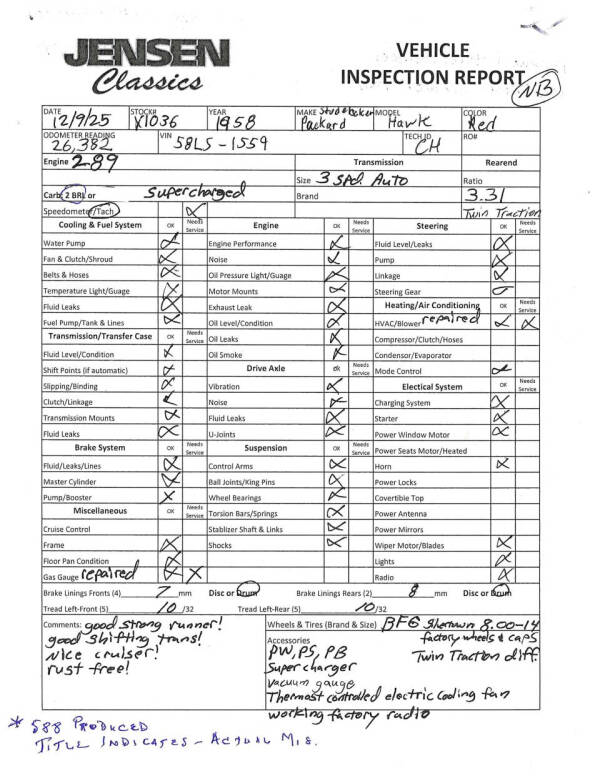 JENSEN
Classics
VEHICLE
INSPECTION REPORT
NB
DATE STOCK# YEAR MAKE Studebaker MODEL COLOR
12/9/25 X1036 1958 Packard Hawk Red
ODOMETER READING VIN TECH ID RO#
26,382 58LS-1559 CH
Engine 289 Transmission Rearend
Size 3 Spd. Auto Ratio
Carb 2 BRL or Supercharged Brand 3.31
Speedometer/Tach Twin Traction
Cooling & Fuel System OK Needs Service Engine OK Needs Service Steering OK Needs Service
Water Pump Engine Performance Fluid Level/Leaks
Fan & Clutch/Shroud Noise Pump
Belts & Hoses Oil Pressure Light/Guage Linkage
Temperature Light/Guage Motor Mounts Steering Gear
Fluid Leaks Exhaust Leak Heating/Air Conditioning OK Needs Service
Fuel Pump/Tank & Lines Oil Level/Condition HVAC/Blower repaired
Transmission/Transfer Case OK Needs Service Oil Leaks Compressor/Clutch/Hoses
Fluid Level/Condition Oil Smoke Condensor/Evaporator
Shift Points (if automatic) Drive Axle ok Needs Service Mode Control
Slipping/Binding Vibration Electrical System OK Needs Service
Clutch/Linkage Noise Charging System
Transmission Mounts Fluid Leaks Starter
Fluid Leaks U-Joints Power Window Motor
Brake System OK Needs Service Suspension OK Needs Service Power Seats Motor/Heated
Fluid/Leaks/Lines Control Arms Horn
Master Cylinder Ball Joints/King Pins Power Locks
Pump/Booster Wheel Bearings Covertible Top
Miscellaneous OK Needs Service Torsion Bars/Springs Power Antenna
Cruise Control Stablizer Shaft & Links Power Mirrors
Frame Shocks Wiper Motor/Blades
Floor Pan Condition Lights
Gas Gauge repaired Radio
Brake Linings Fronts (4) 7 mm Disc or Drum Brake Linings Rears (2) 8 mm Disc or Drum
Tread Left-Front (5) 10 /32 Tread Left-Rear (5) 10 /32
Comments: good strong runner!
good shifting trans!
nice cruiser!
rust free!
Wheels & Tires (Brand & Size) BFG 8.00-14
Accessories factory wheels & caps
PW, PS, PB Twin Traction diff.
Supercharger
Vacuum gauge
Thermost controlled electric cooling fan
working factory radio
* 588 PRODUCED
TITLE INDICATES - ACTUAL MIS.